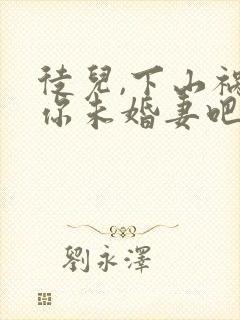 徒兒,下山禍
你未婚妻吧
劉永澤